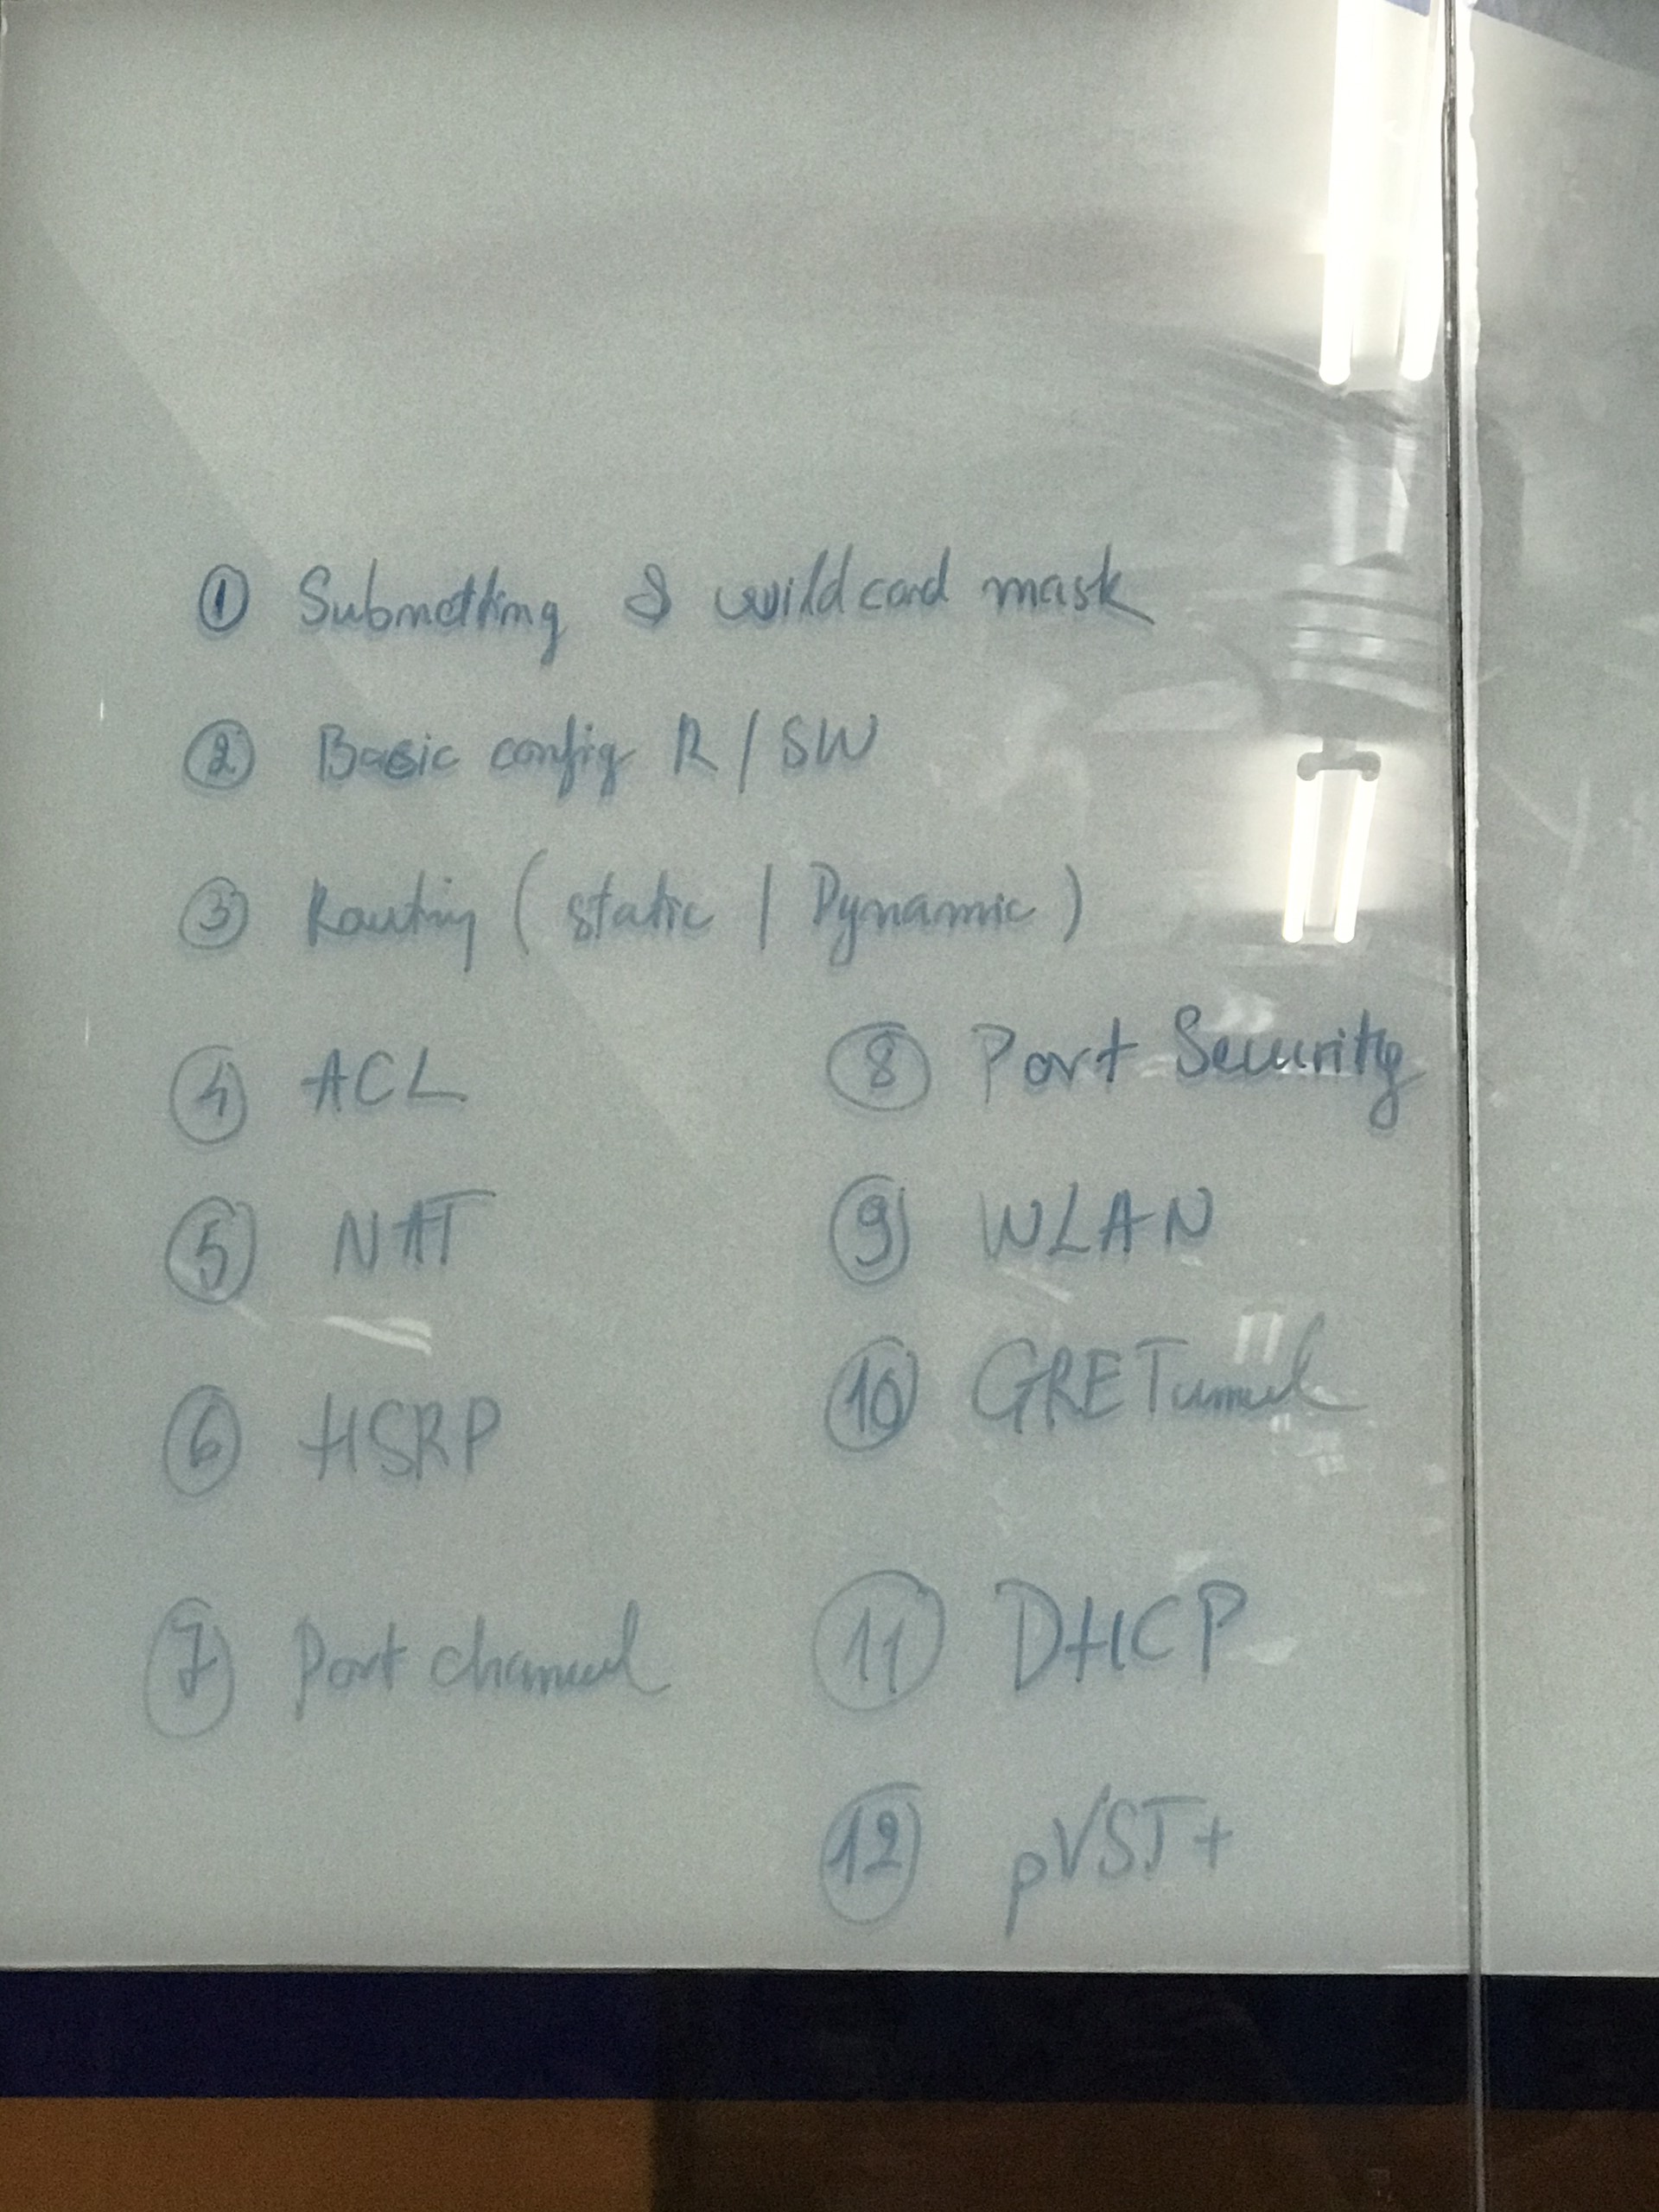 ① Subnetting & wildcard mask
② Basic config R / SW
③ Routing ( static / Dynamic )
④ ACL
⑤ NAT
⑥ HSRP
⑦ Port channel
⑧ Port Security
⑨ WLAN
⑩ GRE Tunnel
⑪ DHCP
⑫ pVST+